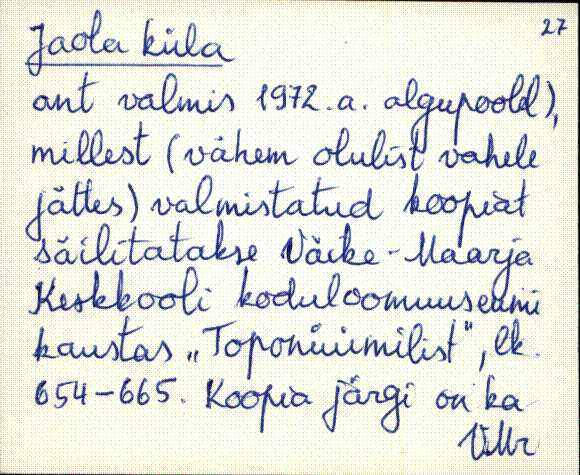 27
Jaola küla
ant valmis 1972.a. algupoolel),
millest (vähem olulist vahele
jättes) valmistatud koopiat
säilitatakse Väike-Maarja
Keskkooli koduloomuuseumi
kaustas „Toponüümilist", lk.
654-665. Koopia järgi on ka